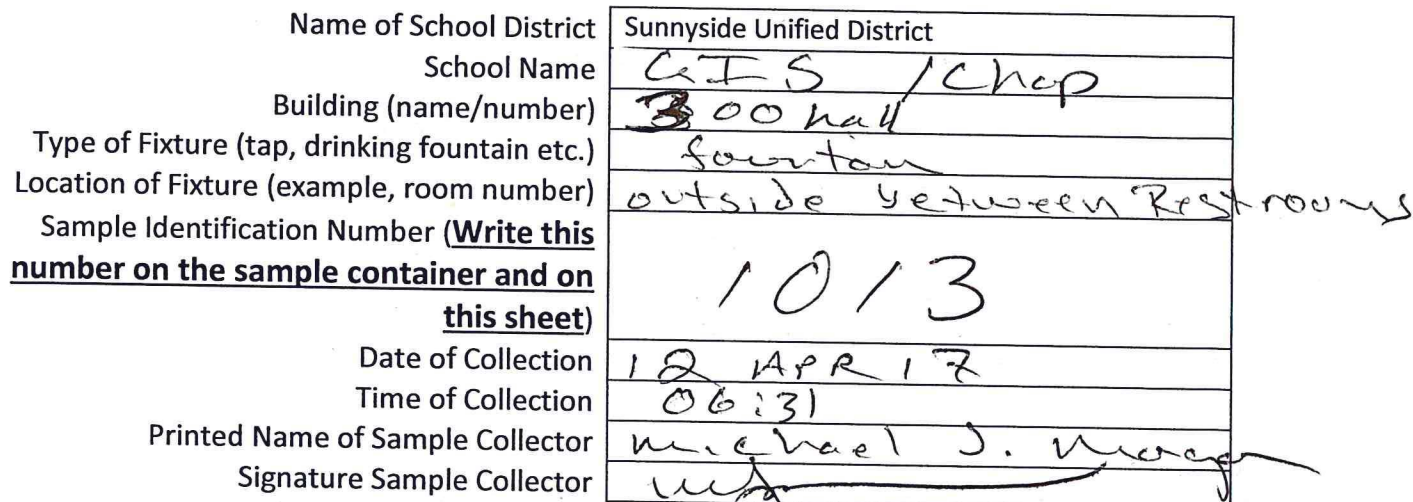 Name of School District Sunnyside Unified District
School Name GIS / Chap
Building (name/number) 300 hall
Type of Fixture (tap, drinking fountain etc.) fountan
Location of Fixture (example, room number) outside between Restrooms
Sample Identification Number (Write this
number on the sample container and on
this sheet) 1013
Date of Collection 12 APR 17
Time of Collection 06:31
Printed Name of Sample Collector Michael J. Morgan
Signature Sample Collector